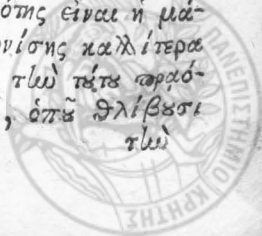 ότης εἶναι ἡ μά-
ονίσης καλλίτερα
τὴν τούτου πραό-
, ὁποῦ θλίβουσι
τὴν
ΠΑΝΕΠΙΣΤΗΜΙΟ ΚΡΗΤΗΣ